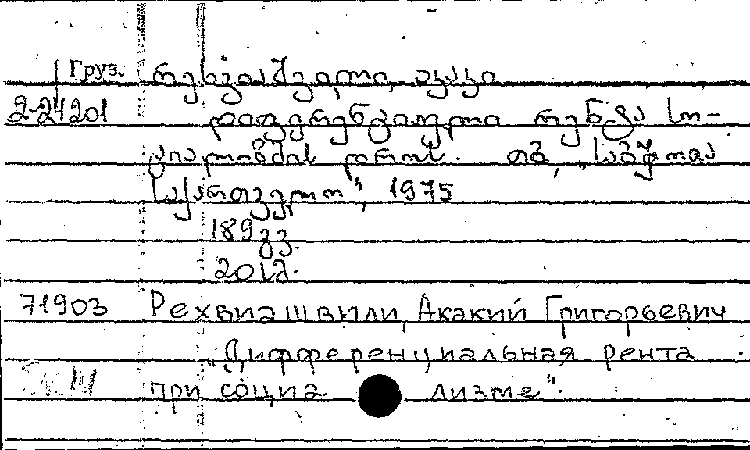 Груз. რეხვიაშვილი, აკაკი
2-24201 დიფერენციალური რენტა სო-
ციალიზმის დროს. თბ., „საბჭოთა
საქართველო", 1975
189 გვ.
20 სმ.
71903 Рехвиашвили, Акакий Григорьевич
„Дифференциальная рента
при социализме".